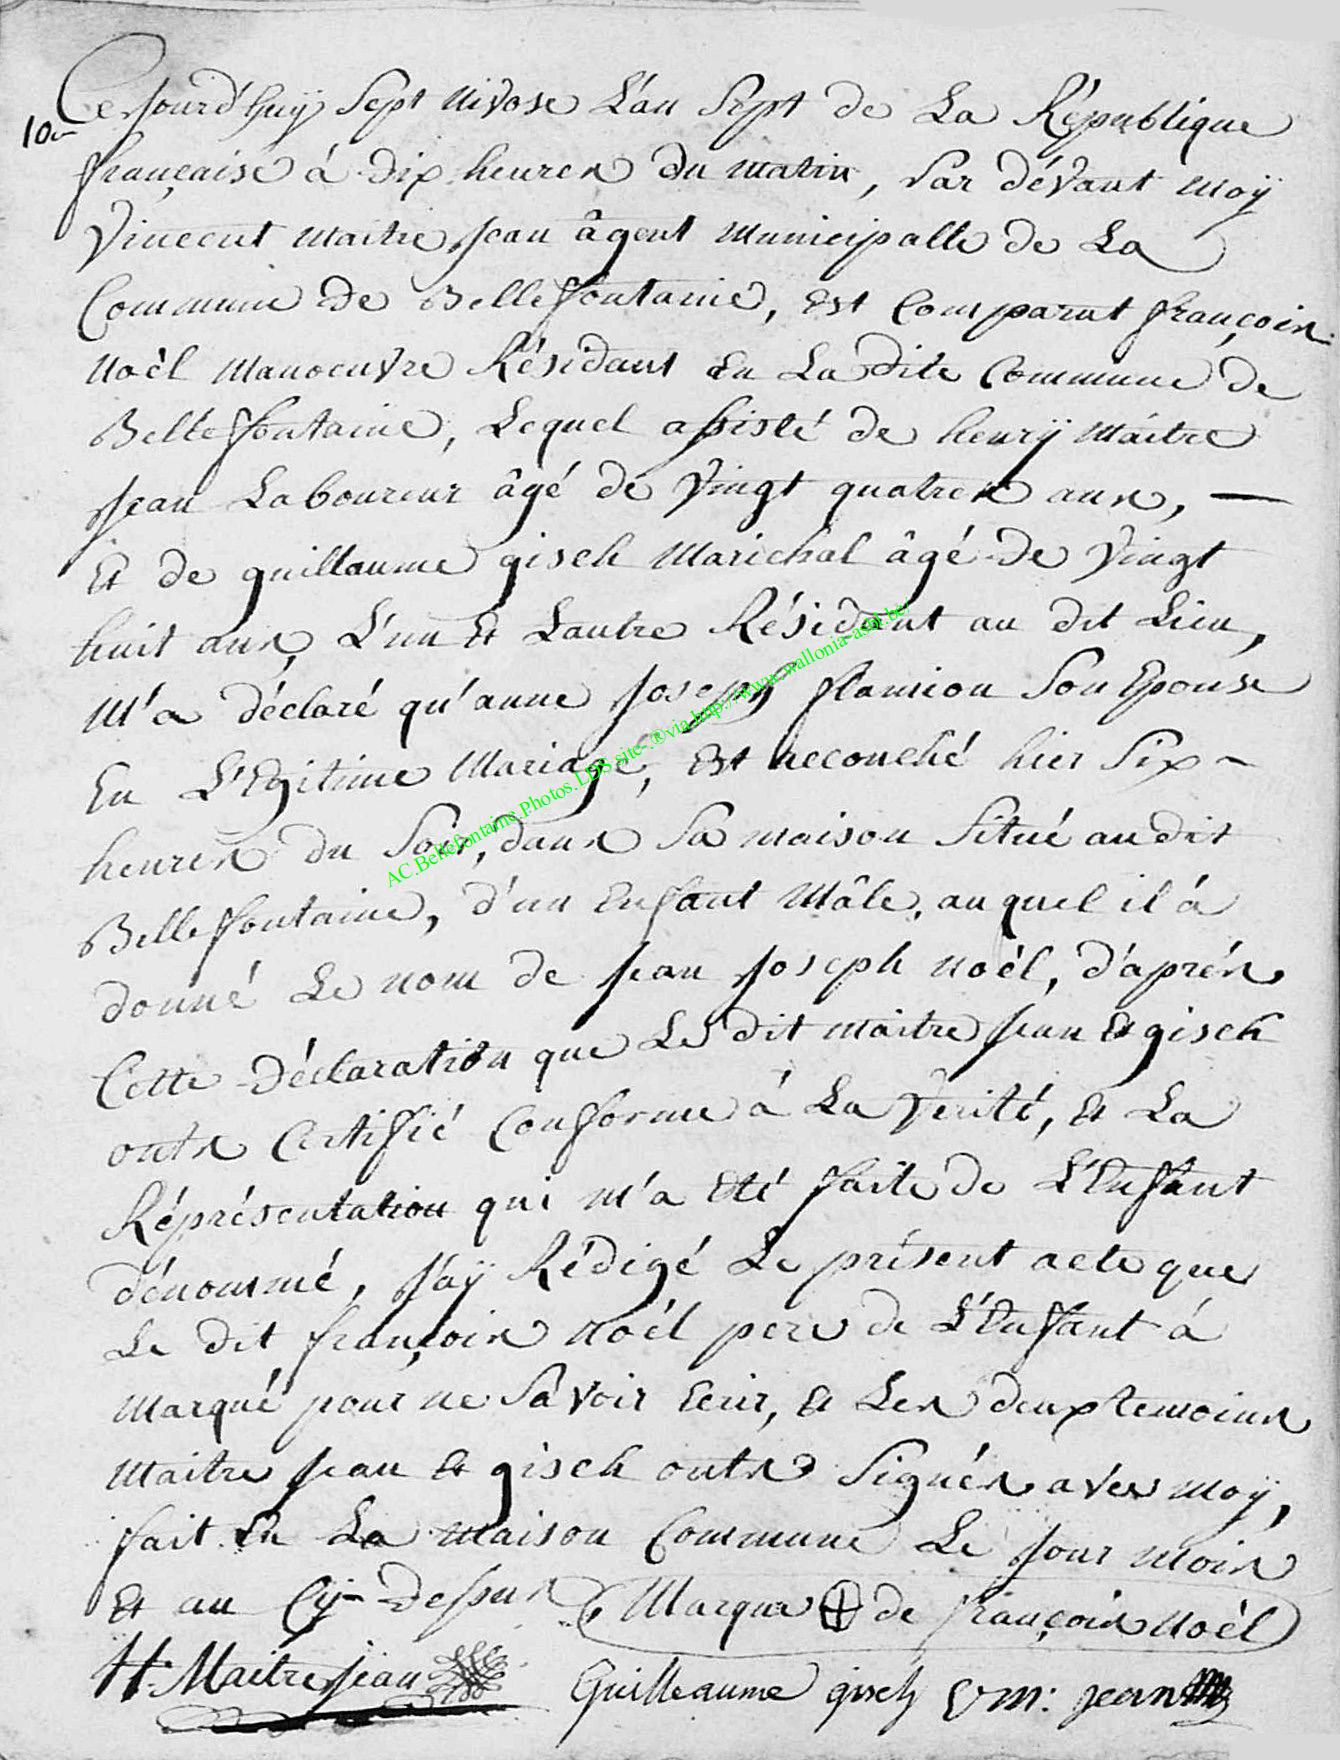 Ce Jourd'huÿ Sept Nivose L'an Sept de La République
10e
française à dix heures du matin, Par dévant moÿ
Vincent Maitre Jean âgent Municipalle de La
Commune de Bellefontaine, Est Comparut françois
Noèl Manoeuvre Résidant En La dite Commune de
Belleffontaine, Lequel assisté de henrÿ Maitre
Jean Laboureur âgé de Vingt quatres ans, —
Et de guillaume gisch Marichal âgé de Vingt
huit ans, L'un Et Lautre Résident au dit Lieu,
M'a déclaré qu'anne Joseph flamion Son Epouse
En L'Egitime Mariage, Est accouché hier Six
heures du Soir, dans Sa maison Situé audit
Belleffontaine, d'un Enfant Mâle, auquel il à
donné Le nom de Jean Joseph Noèl, d'après
Cette déclaration que Le dit Maitre Jean Et gisch
onts Certiffié Confforme à La Verité, Et La
Réprésentation qui m'a Eté faite de L'Enffant
dénommé, J'aÿ Rédigé Le présent acte que
Le dit françois Noèl pere de L'Enffant à
Marqué pour ne Savoir Ecrir, Et Les deux temoins
Maitre Jean Et gisch onts Signés avec moÿ,
fait En La Maison Commune Le Jour Mois
Et an Cÿ-dessus Marque de françois Noèl
H: Maitrejean Guilleaume gisch V M: jean
AC.Bellefontaine.Photos.LDS.site-.®via.http://www.wallonia-asbl.be/